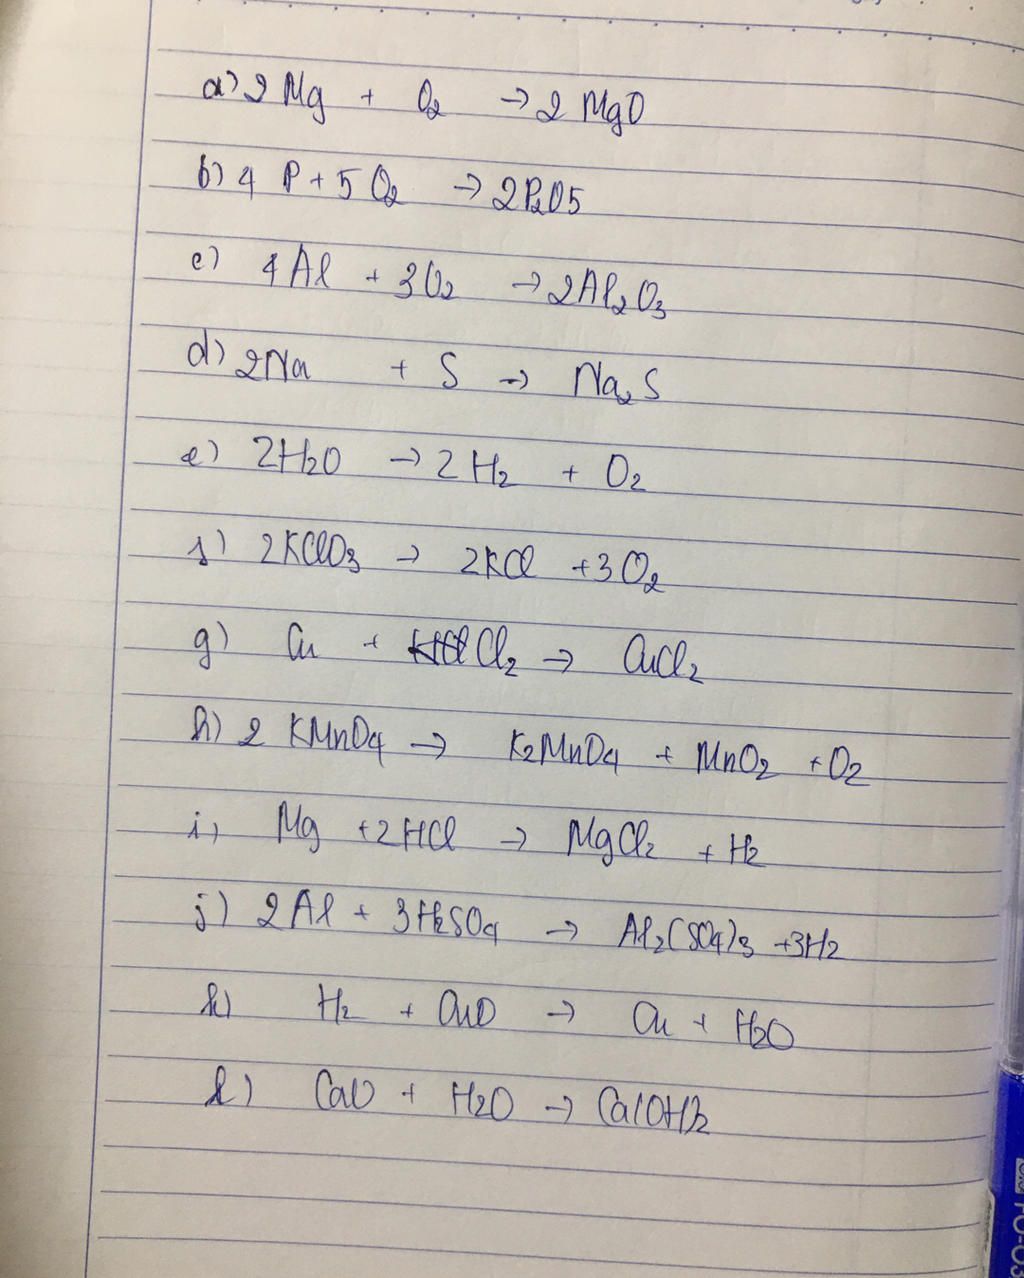 a) 2 Mg + O₂ → 2 MgO
b) 4 P + 5 O₂ → 2P₂O5
c) 4Al + 3O₂ → 2Al₂O₃
d) 2Na + S → Na₂S
e) 2H₂O → 2H₂ + O₂
f) 2KClO₃ → 2KCl + 3O₂
g) Cu + Cl₂ → CuCl₂
h) 2 KMnO₄ → K₂MnO₄ + MnO₂ + O₂
i) Mg + 2HCl → MgCl₂ + H₂
j) 2Al + 3H₂SO₄ → Al₂(SO₄)₃ + 3H₂
k) H₂ + CuO → Cu + H₂O
l) CaO + H₂O → Ca(OH)₂